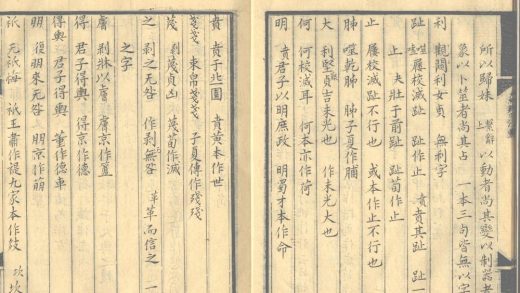 所以歸妹 上繫辭 以動者尚其變以制器者
象以卜筮者尚其占 一本三句皆無以字
利 觀闚利女貞 無利字
趾 噬嗑屨校滅趾 趾作止 賁賁其趾
止 夬壯于前趾 趾荀作止
止 屨校滅趾不行也 或本作止不行也
肺 噬乾胏 胏子夏作脯
大 利艱貞吉未光也 作未光大也
何 何校滅耳 何本亦作荷
明 賁君子以明庶政 明蜀才本作命
賁 賁于丘園 賁黃本作世
戔戔 束帛戔戔 子夏傳作殘殘
蔑 剥蔑貞凶 蔑荀作滅
之 剥之无咎 作剥無咎 革 革而信之 一
之字
膚 剥牀以膚 膚京作簠
得 君子得輿 得京作德
得輿 君子得輿 董作德車
朋 復朋來无咎 朋京作崩
祇 无祇悔 祇王肅作禔九家本作𢻲 坎坎